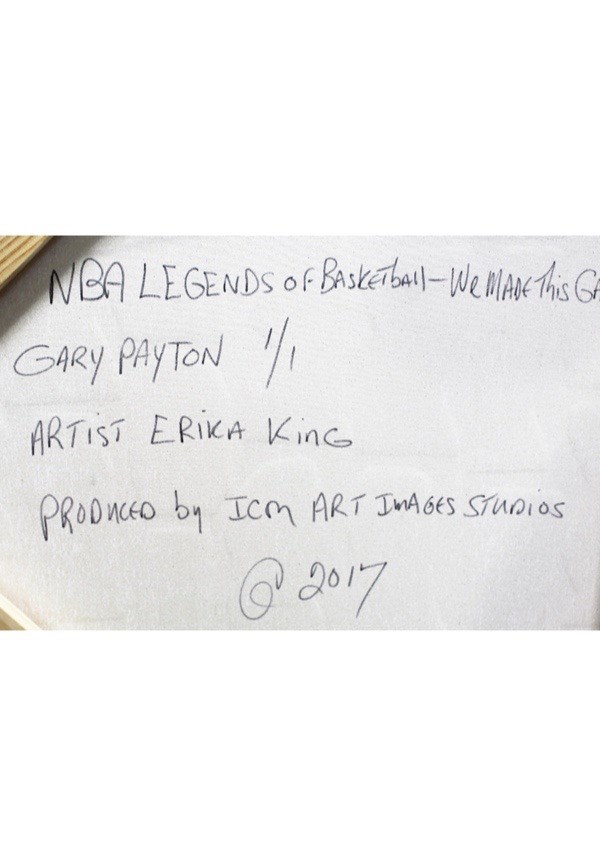 NBA LEGENDS OF BASketbAll-We MADE This GA
GARY PAYTON 1/1
ARTiST ERiKA KinG
PRODUCED by ICM ART IMAGES STUDiOS
© 2017